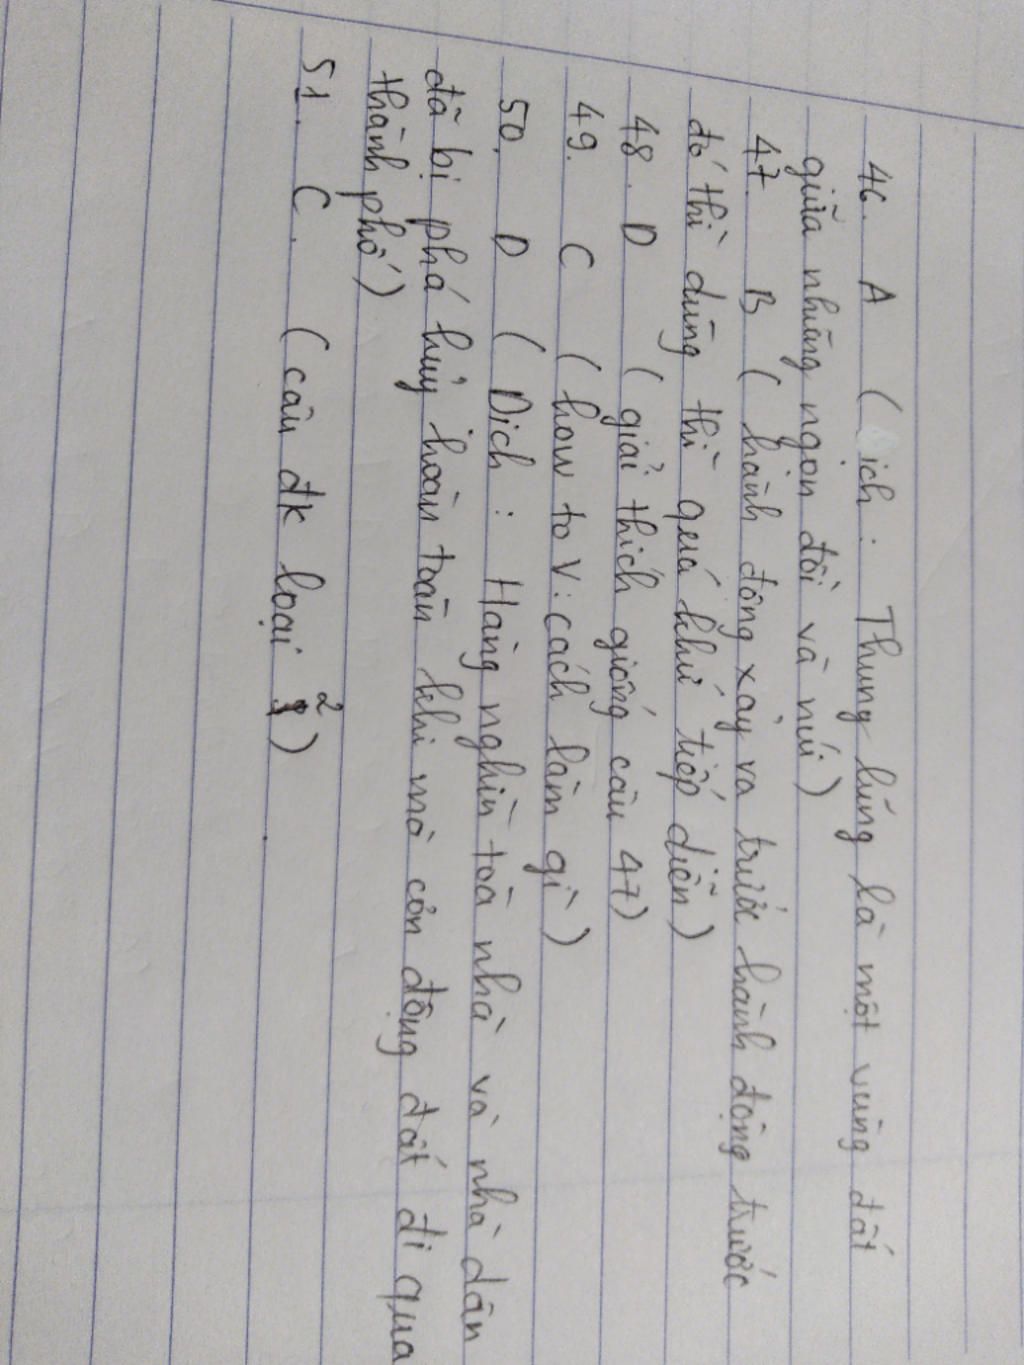 46. A ( ịch : Thung lũng là một vùng đất
giữa những ngọn đồi và núi)
47. B ( hành động xảy ra trước hành động trước
đó thì dùng thì quá khứ tiếp diễn)
48. D ( giải thích giống câu 47)
49. C ( how to V: cách làm gì )
50. D ( Dịch : Hàng nghìn toà nhà và nhà dân
đã bị phá hủy hoàn toàn khi mà cơn động đất đi qua
thành phố )
51. C. ( câu đk loại 2 )